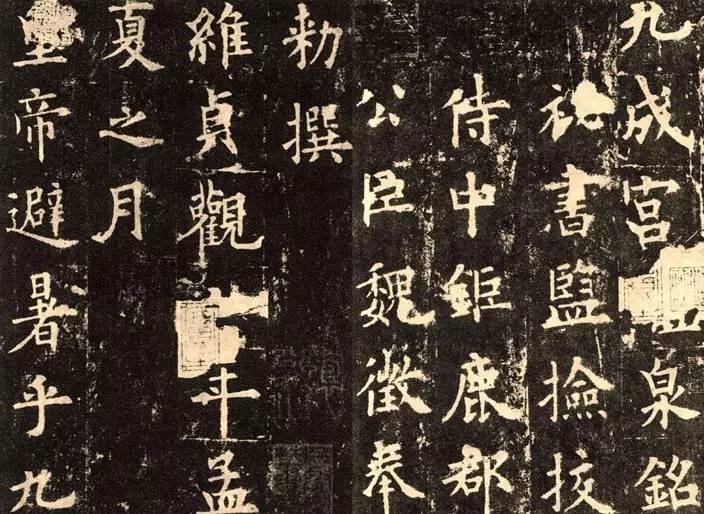 九成宮泉銘
祕書監撿挍
侍中鉅鹿郡
公臣魏徵奉
勑撰
維貞觀六年孟
夏之月
皇帝避暑乎九